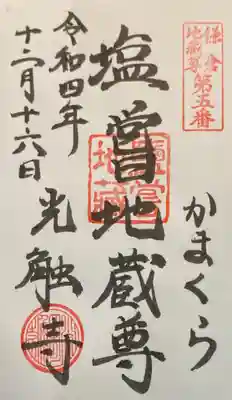 鎌倉
地蔵尊
第五番
かまくら
塩嘗地蔵尊
鹽嘗
地藏
令和四年
十二月十六日
光触寺